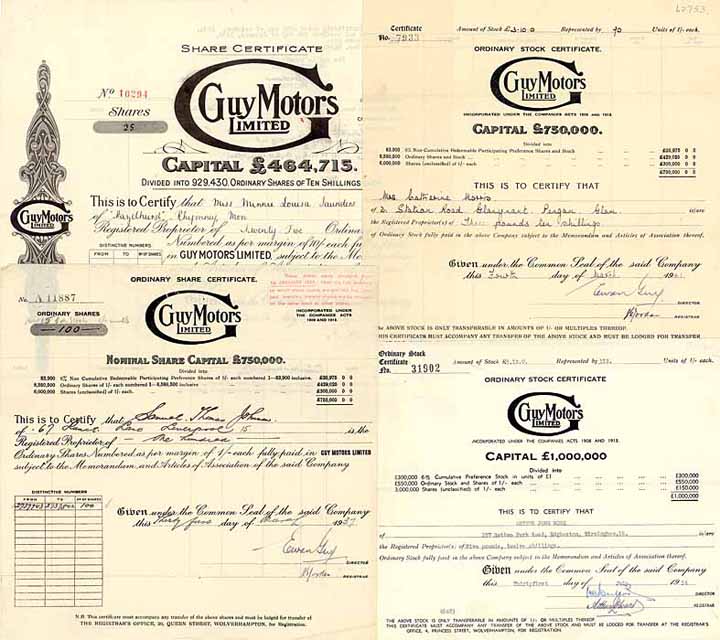 SHARE CERTIFICATE
GUY MOTORS
LIMITED
No 10294
Shares
25
CAPITAL £464,715.
DIVIDED INTO 929,430, ORDINARY SHARES OF TEN SHILLINGS
This is to Certify that Miss Minnie Louisa Saunders
of "Hazelhurst", Rhymney Mon
Registered Proprietor of Twenty Five Ordina
Numbered as per margin of 10/- each fu
in GUY MOTORS LIMITED, subject to the Me
DISTINCTIVE NUMBERS
FROM TO No OF SHARES
GUY MOTORS
LIMITED
Certificate
No. 7933
Amount of Stock £3-10-0 Represented by 70 Units of 1/- each.
ORDINARY STOCK CERTIFICATE.
GUY MOTORS
LIMITED
INCORPORATED UNDER THE COMPANIES ACTS 1908 AND 1913.
CAPITAL £750,000.
Divided into
6% Non-Cumulative Redeemable Participating Preference Shares and Stock
Ordinary Shares and Stock
Shares (unclassified) of 1/- each
£750,000 0 0
THIS IS TO CERTIFY THAT
Mrs Catherine Morris
of 2. Station Road Glasgrant, Pergam Glam.
the Registered Proprietor(s) of Three pounds ten shillings
of Ordinary Stock fully paid in the above Company subject to the Memorandum and Articles of Association thereof.
Given under the Common Seal of the said Company
this Fourth day of March
DIRECTOR
REGISTRAR
The ABOVE STOCK IS ONLY TRANSFERABLE IN AMOUNTS OF 1/- OR MULTIPLES THEREOF.
THIS CERTIFICATE MUST ACCOMPANY ANY TRANSFER OF THE ABOVE STOCK AND MUST BE LODGED FOR TRANSFER
ORDINARY SHARE CERTIFICATE.
No. A 11887
ORDINARY SHARES
100
GUY MOTORS
LIMITED
INCORPORATED
UNDER THE
COMPANIES ACTS
1908 AND 1913.
NOMINAL SHARE CAPITAL £750,000.
Divided into
£750,000 0 0
This is to Certify that Samuel Thomas Johnson
Liverpool 15 is the
Registered Proprietor of One hundred
Ordinary Shares Numbered as per margin of 1/- each fully paid in GUY MOTORS LIMITED
subject to the Memorandum and Articles of Association of the said Company
DISTINCTIVE NUMBERS
FROM TO No OF SHARES
100
Given under the Common Seal of the said Company
this Thirty first day of 1937
Ewen Guy
DIRECTOR
REGISTRAR
N.B. This certificate must accompany any transfer of the above shares and must be lodged for transfer at
THE REGISTRAR'S OFFICE, 20, QUEEN STREET, WOLVERHAMPTON, for Registration.
Ordinary Stock
Certificate
No. 31902
Amount of Stock Represented by Units of 1/- each.
ORDINARY STOCK CERTIFICATE
GUY MOTORS
LIMITED
INCORPORATED UNDER THE COMPANIES ACTS 1908 AND 1913.
CAPITAL £1,000,000
Divided into
£300,000 6% Cumulative Preference Stock in units of £1 £300,000
£550,000 Ordinary Stock and Shares of 1/- each £550,000
3,000,000 Shares (unclassified) of 1/- each £150,000
£1,000,000
THIS IS TO CERTIFY THAT
the Registered Proprietor(s) of Five pounds, twelve shillings.
Ordinary Stock fully paid in the above Company subject to the Memorandum and Articles of Association thereof.
Given under the Common Seal of the said Company
this Thirty-first day of
DIRECTOR
REGISTRAR
THE ABOVE STOCK IS ONLY TRANSFERABLE IN AMOUNTS OF 1/- OR MULTIPLES THEREOF.
THIS CERTIFICATE MUST ACCOMPANY ANY TRANSFER OF THE ABOVE STOCK AND MUST BE LODGED FOR TRANSFER AT THE REGISTRAR'S
OFFICE, 4, PRINCES STREET, WOLVERHAMPTON, FOR REGISTRATION